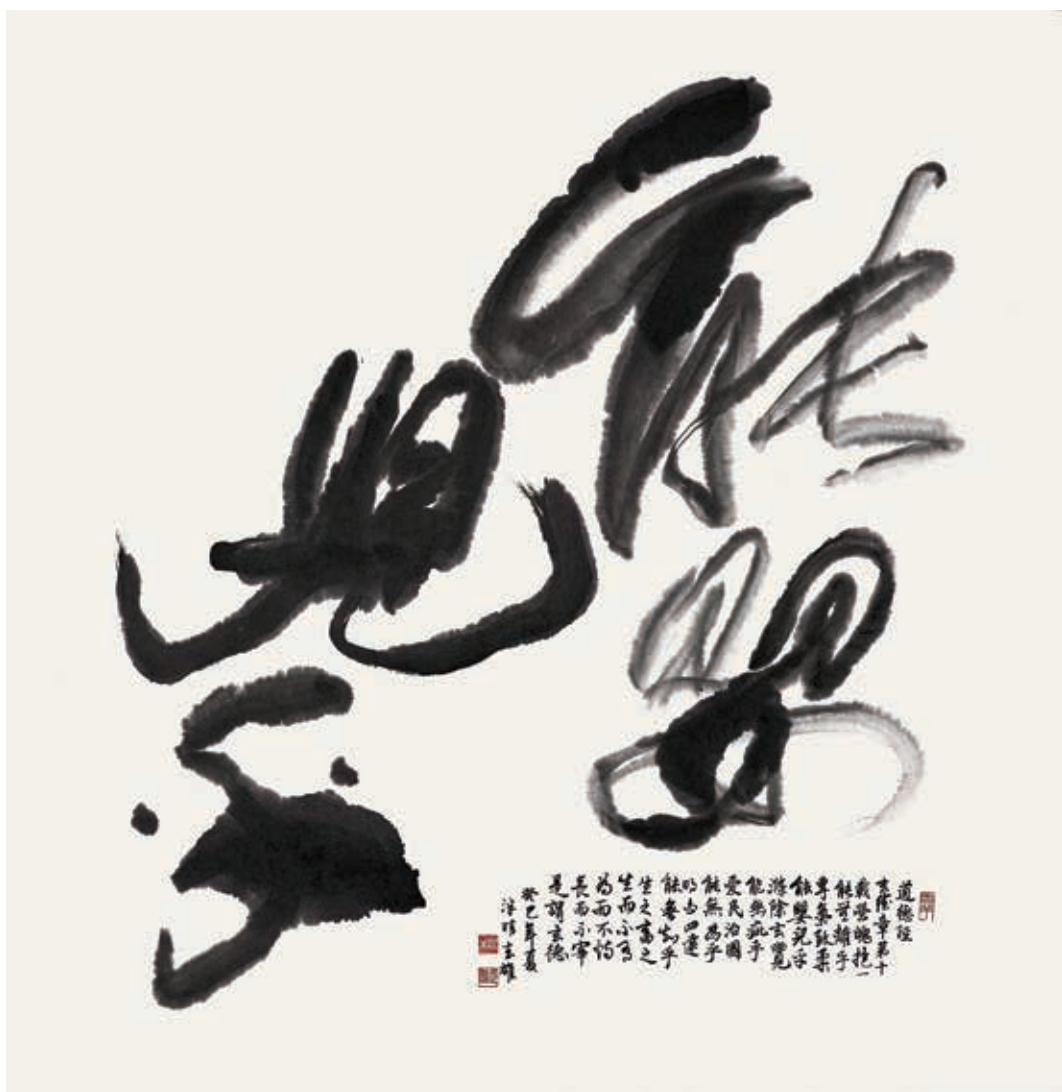 能嬰
兒乎
道德經
章第十
載營魄抱一
能無離乎
專氣致柔
能嬰兒乎
滌除玄覽
能無疵乎
愛民治國
能無為乎
明白四達
能無知乎
生之畜之
生而不有
為而不恃
長而不宰
是謂玄德
癸巳年夏